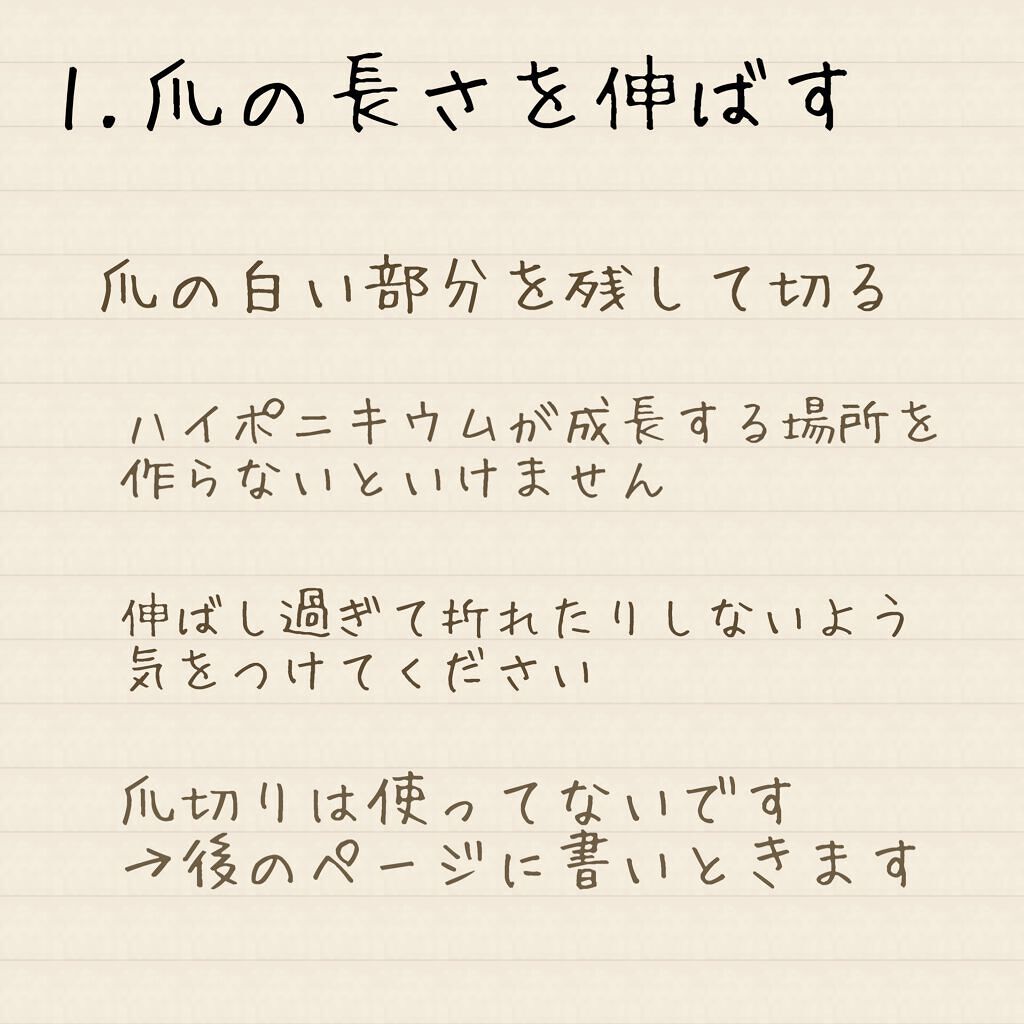 1.爪の長さを伸ばす
爪の白い部分を残して切る
ハイポニキウムが成長する場所を
作らないといけません
伸ばし過ぎて折れたりしないよう
気をつけてください
爪切りは使ってないです
→後のページに書いときます